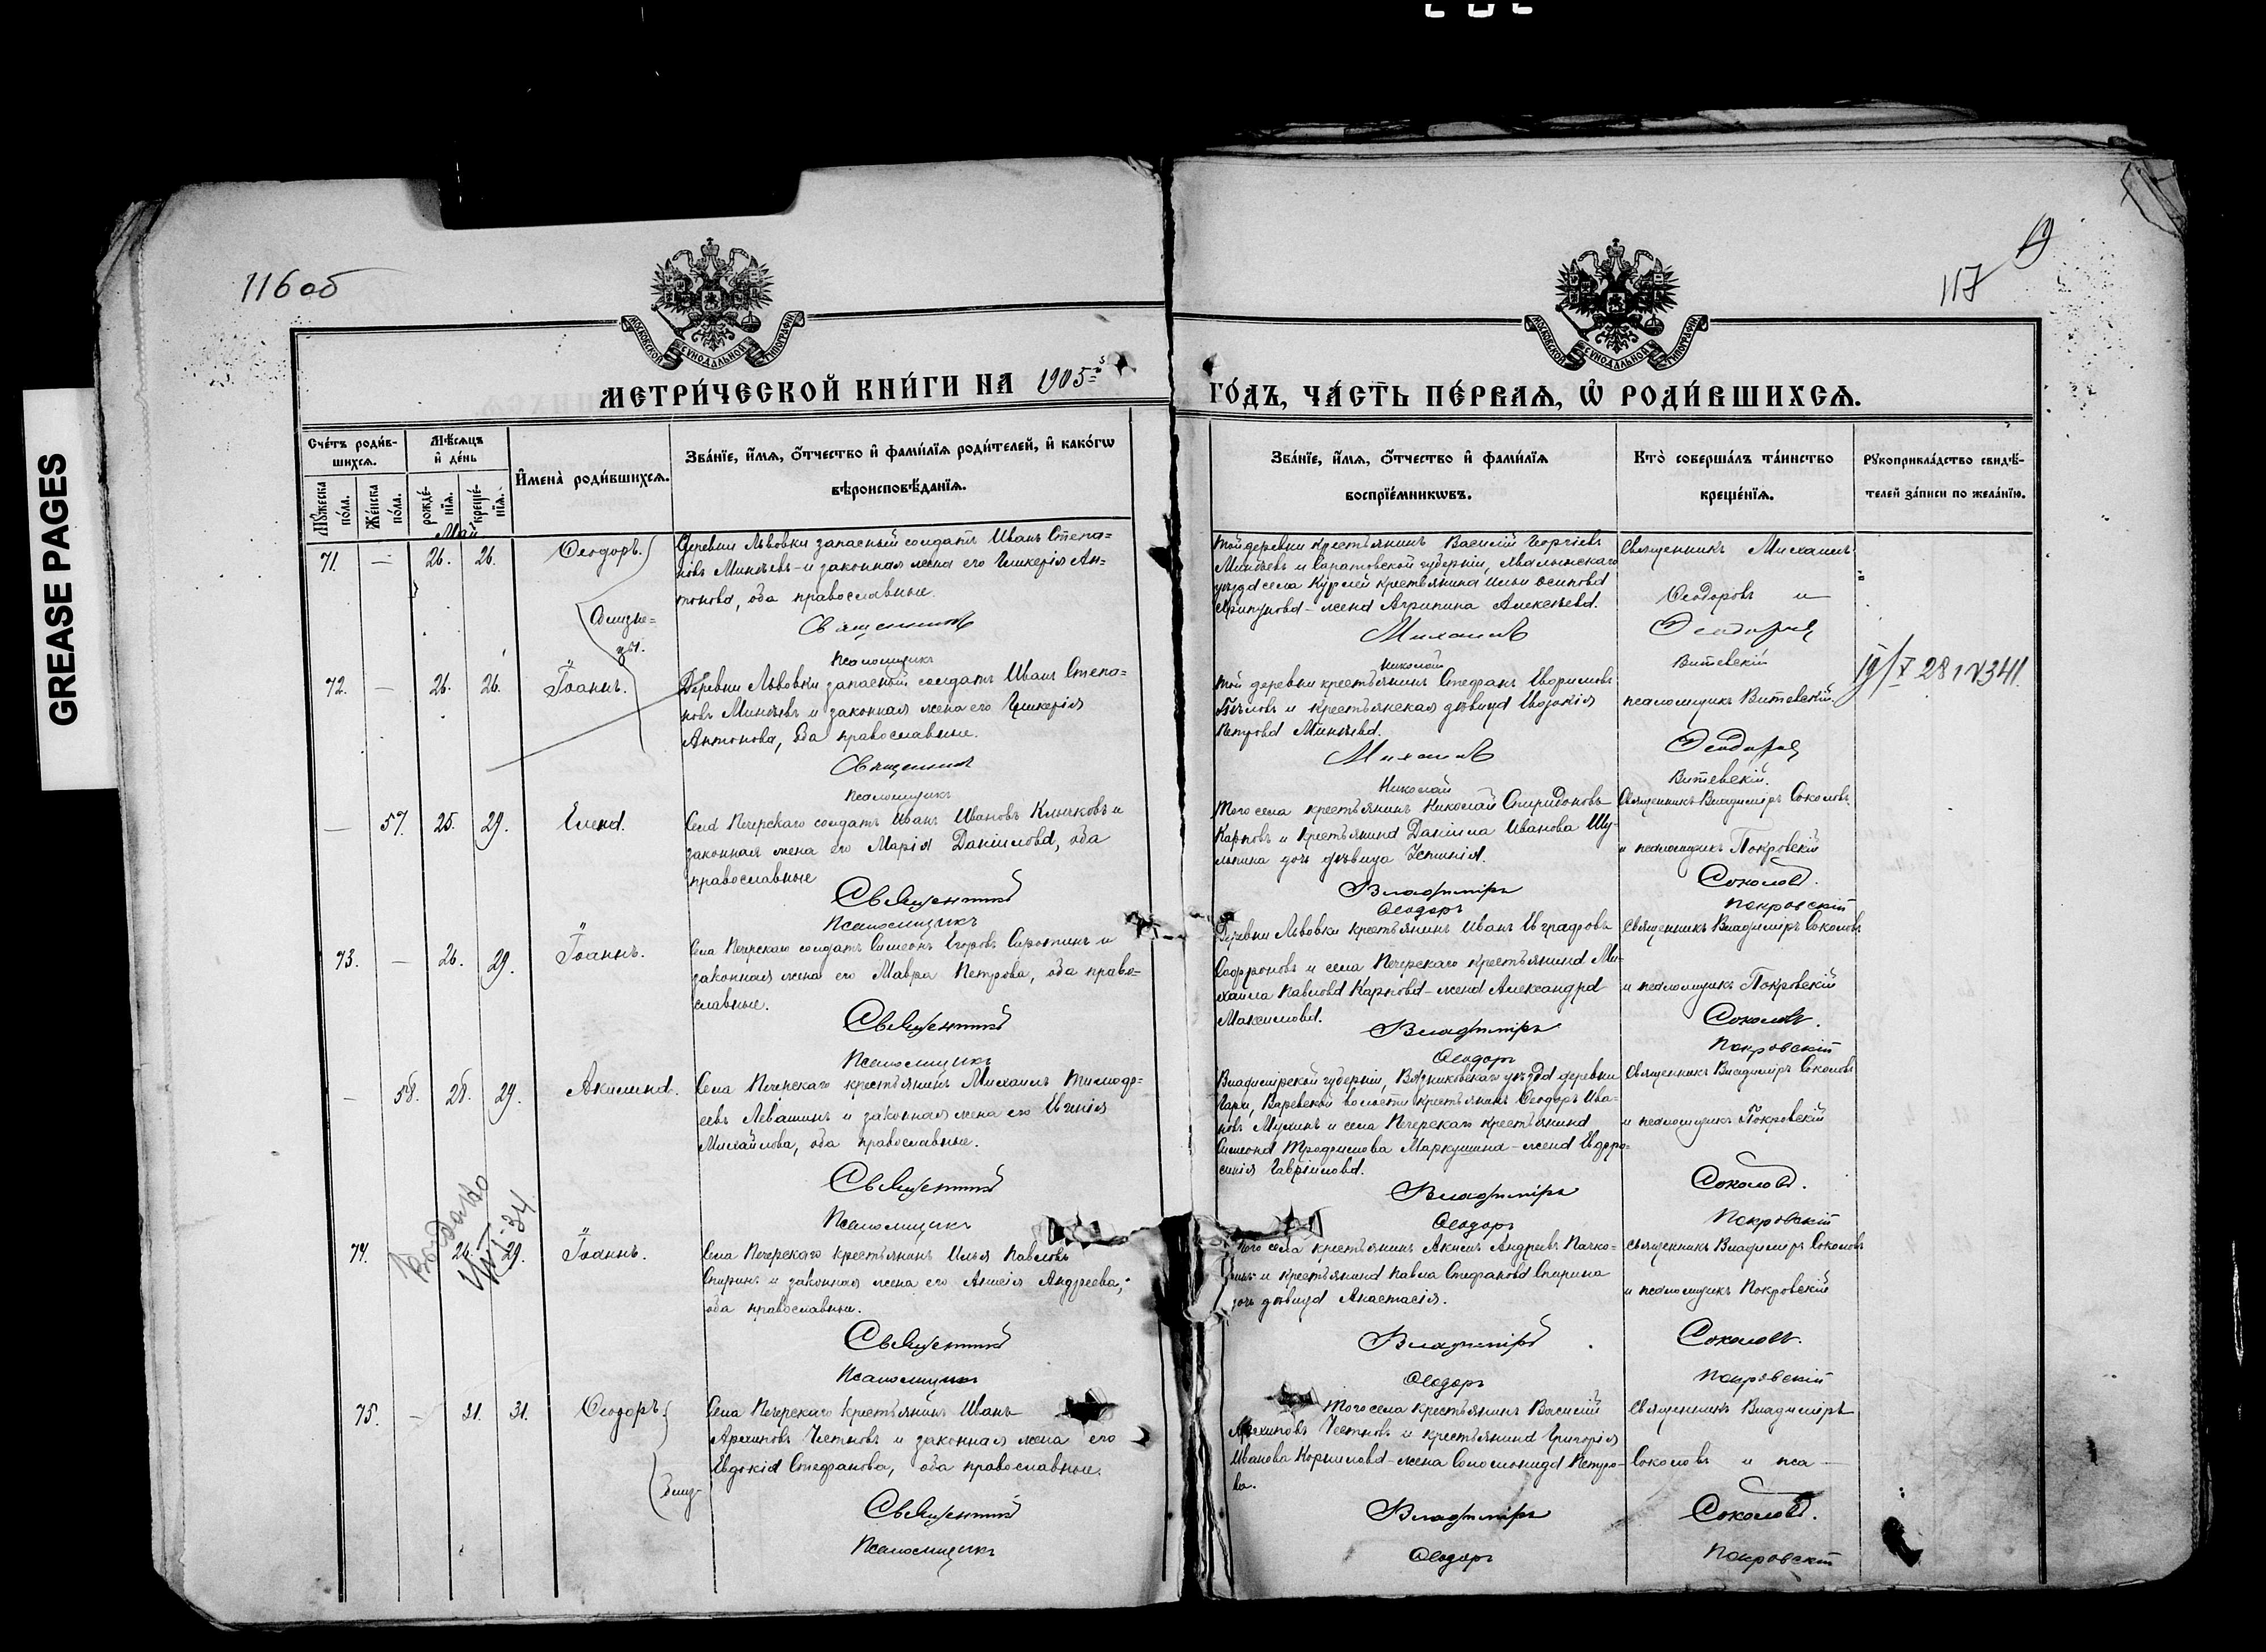 GREASE PAGES
116 об
117
9
МОСКОВСКОЙ СѴНОДАЛЬНОЙ ТИПОГРАФІИ
МОСКОВСКОЙ СѴНОДАЛЬНОЙ ТИПОГРАФІИ
МЕТРИ́ЧЕСКОЙ КНИ́ГИ НА 1905й
ГО́ДЪ, ЧА́СТЬ ПЕ́РВАѦ, Ѡ҆ РОДИ́ВШИХСѦ.
Сче́тъ роди́в-
шихсѧ.
Мѣ́сѧцъ
и҆ де́нь
И҆мена̀ роди́вшихсѧ.
Зва́нїе, и҆́мѧ, ѻ҆́тчество и҆ фами́лїѧ роди́телей, и҆ како́гѡ
вѣроисповѣ́данїѧ.
Мꙋ́жеска по́ла.
Же́нска по́ла.
рожде́-нїѧ.
креще́-нїѧ.
Зва́нїе, и҆́мѧ, ѻ҆́тчество и҆ фами́лїѧ
воспрїе́мникѡвъ.
Кто̀ соверша́лъ та́инство
креще́нїѧ.
Рꙋкоприкла́дство свидѣ́-
телей за́писи по жела́нїю.
Май
71. — 26. 26. Ѳеодоръ.
Деревни Львовки запасный солдатъ Иванъ Степа=
новъ Минѣевъ и законная жена его Гликерія Ан=
тонова, оба православные.
Близне=
цы.
Священникъ
Псаломщикъ
Той деревни крестьянинъ Василій Георгіевъ
Минѣевъ и Саратовской губерніи, Хвалынскаго
уѣзда села крестьянина Ильи Осипова
жена Агрипина Алексѣева.
Михаилъ
Николай
Священникъ Михаилъ
Ѳеодоровъ и
Ѳеодоровъ
Витевскій
72. — 26. 26. Іоаннъ.
Деревни Львовки запасный солдатъ Иванъ Степа=
новъ Минѣевъ и законная жена его Гликерія
Антонова, оба православные.
Священникъ
Псаломщикъ
Той деревни крестьянинъ Стефанъ
и крестьянская дѣвица Евдокія
Петрова Минѣева.
Михаилъ
Николай
псаломщикъ Витевскій.
Ѳеодоровъ
Витевскій.
19/V 28 г N341
— 57. 25. 29. Елена.
Села Печерскаго солдатъ Иванъ Ивановъ Клычковъ и
законная жена его Марія Даніилова, оба
православные
Священникъ
Псаломщикъ
Того села крестьянинъ Николай Спиридоновъ
Карповъ и крестьянина Даніила Иванова Шу-
льпина дочь дѣвица
Владиміръ
Ѳеодоръ
Священникъ Владиміръ Соколовъ
и псаломщикъ Покровскій
Соколовъ.
Покровскій
73. — 26. 29. Іоаннъ.
Села Печерскаго солдатъ Симеонъ Егоровъ Сиротинъ и
законная жена его Мавра Петрова, оба право=
славные.
Священникъ
Псаломщикъ
Деревни Львовки крестьянинъ Иванъ Евграфовъ
Софроновъ и села Печерскаго крестьянина Ми-
хаила Павлова Карпова - жена Александра
Максимова.
Владиміръ
Ѳеодоръ
Священникъ Владиміръ Соколовъ
и псаломщикъ Покровскій
Соколовъ.
Покровскій
— 58. 28. 29. Акилина.
Села Печерскаго крестьянинъ Михаилъ Тимофе=
евъ Левашинъ и законная жена его Евгенія
Михайлова, оба православные.
Священникъ
Псаломщикъ
Владимірской губерніи, Вязниковскаго уѣзда деревни
волости крестьянинъ Ѳеодоръ Ива-
новъ Мухинъ и села Печерскаго крестьянина
Симеона Трофимова Маркушина - жена Евфро-
синія Гавріилова.
Владиміръ
Ѳеодоръ
Священникъ Владиміръ Соколовъ
и псаломщикъ Покровскій
Соколовъ.
Покровскій
Выдано
34
74. 24. 29. Іоаннъ.
Села Печерскаго крестьянинъ Илья Павловъ
Спиринъ и законная жена его Анисія Андреева,
оба православные.
Священникъ
Псаломщикъ
Того села крестьянинъ Акимъ Андреевъ
и крестьянина Павла Стефанова Спирина
дочь дѣвица Анастасія.
Владиміръ
Ѳеодоръ
Священникъ Владиміръ Соколовъ
и псаломщикъ Покровскій
Соколовъ.
Покровскій
75. — 31. 31. Ѳеодоръ.
Села Печерскаго крестьянинъ Иванъ
Архиповъ и законная жена его
Евдокія Стефанова, оба православные.
близ-
Священникъ
Псаломщикъ
Того села крестьянинъ Василій
Архиповъ и крестьянина Григорія
Иванова Корнилова - жена Соломонида Петро-
ва.
Владиміръ
Ѳеодоръ
Священникъ Владиміръ
Соколовъ и пса-
Соколовъ.
Покровскій